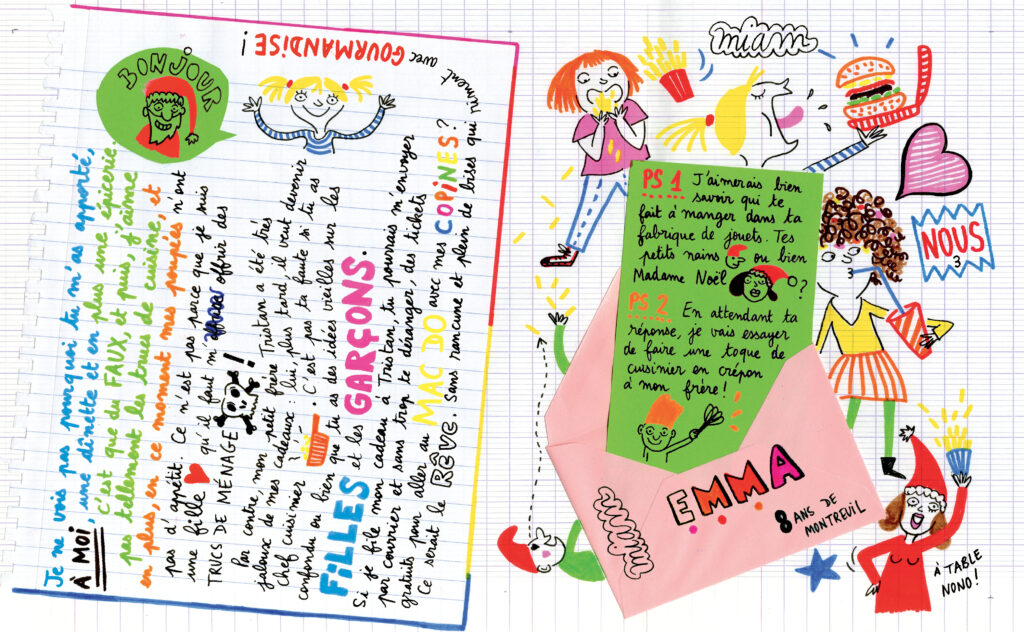 Je ne vois pas pourquoi tu m'as apporté,
À MOI, une dînette et en plus une épicerie.
c'est que du FAUX, et puis, j'aime
pas tellement les trucs de cuisine, et
en plus, en ce moment, mes poupées n'ont
pas d'appétit. Ce n'est pas parce que je suis
une fille qu'il faut m'offrir des
TRUCS DE MÉNAGE !
Par contre, mon petit frère Tristan a été très
jaloux de mes cadeaux : lui, plus tard, il veut devenir
chef cuisinier. C'est pas ta faute si tu as
confondu ou bien que tu as des idées vieilles sur les
FILLES et les GARÇONS.
Si je file mon cadeau à Tristan, tu pourrais m'envoyer
par courrier et sans trop te déranger, des tickets
gratuits pour aller au MAC DO avec mes COPINES ?
Ce serait le RÊVE. Sans rancune et plein de bises qui riment avec GOURMANDISE !
BONJOUR
miam
NOUS
3
PS 1 J'aimerais bien
savoir qui te
fait à manger dans ta
fabrique de jouets. Tes
petits nains ou bien
Madame Noël ?
PS 2 En attendant ta
réponse, je vais essayer
de faire une toque de
cuisinier en crépon
à mon frère !
EMMA
8 ANS DE
MONTREUIL
miam
À TABLE
NONO !